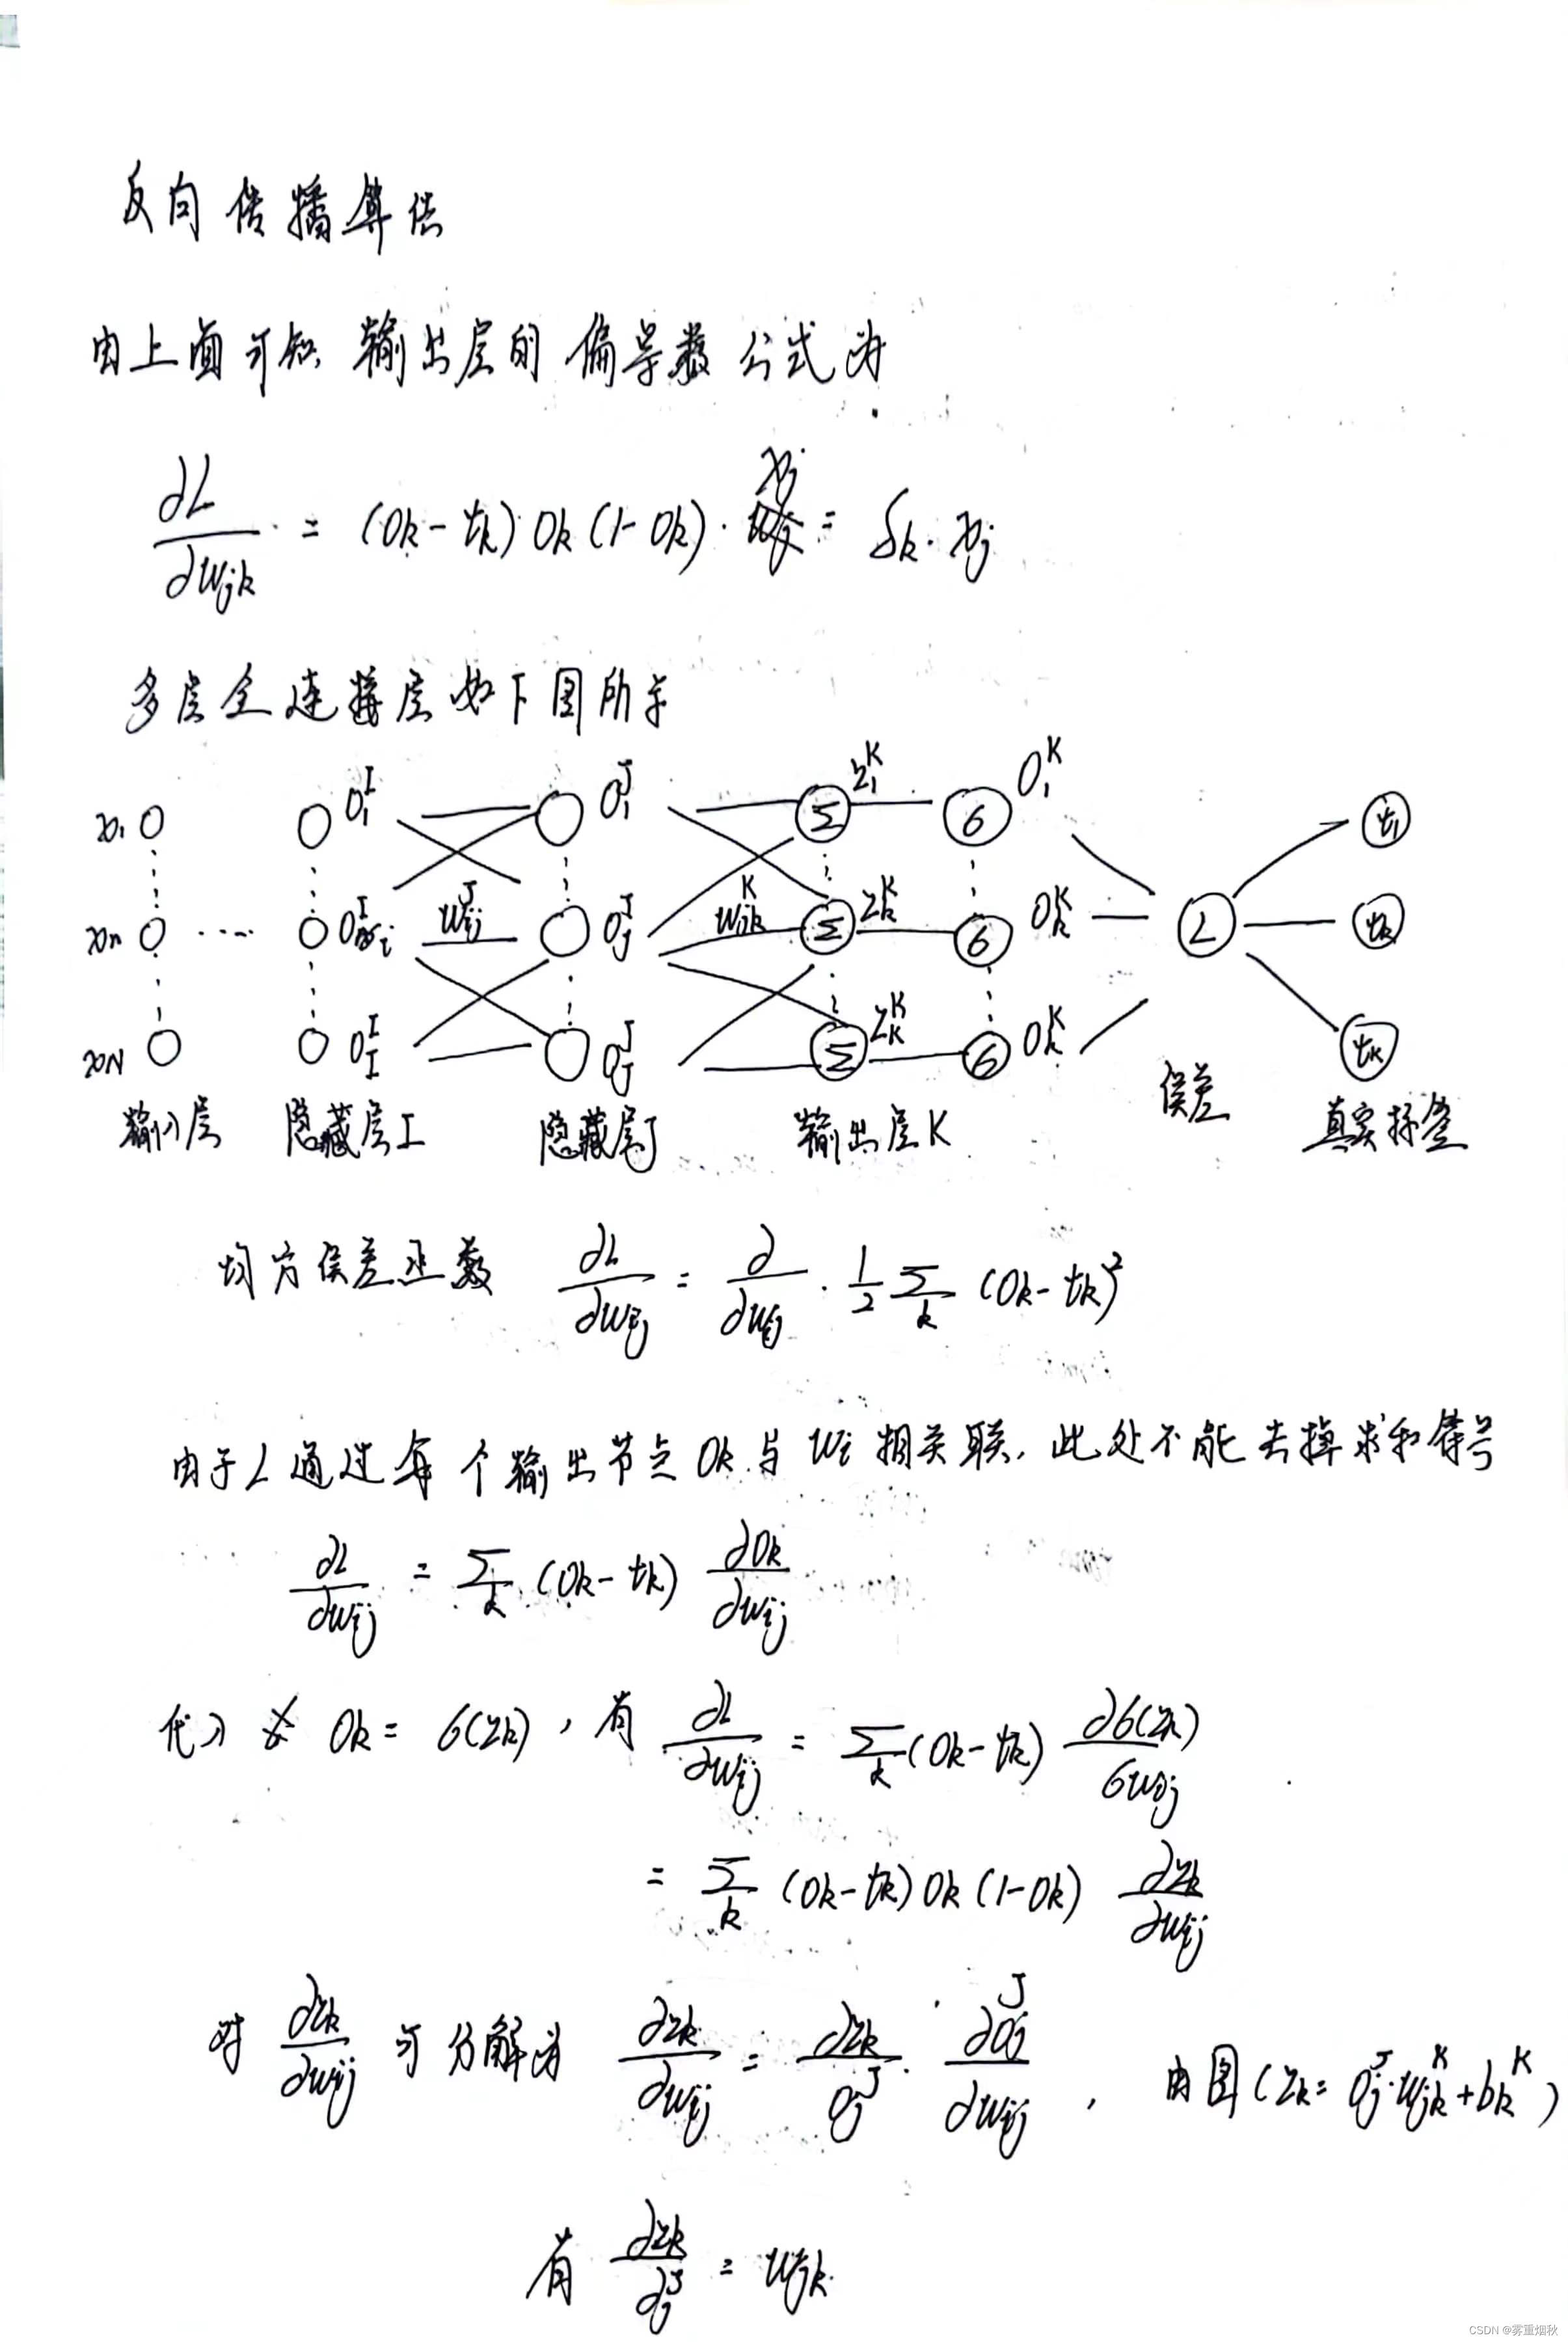 反向传播算法
由上面可知 输出层的 偏导数 公式为
∂L/∂wjk = (Ok - tk) Ok (1-Ok) · xj = δk · xj
多层全连接层如下图所示
x1 O1^I O1^J Σ z1^K σ O1^K t1
xn Oi^I wij^J Oj^J wjk^K Σ zk^K σ Ok^K L tk
xN OI^I OJ^J Σ zK^K σ OK^K tK
输入层 隐藏层I 隐藏层J 输出层K 误差 真实标签
均方误差函数 ∂L/∂wij = ∂/∂wij · 1/2 Σk (Ok - tk)²
由于L通过每个输出节点Ok与wi相关联,此处不能去掉求和符号
∂L/∂wij = Σk (Ok - tk) ∂Ok/∂wij
代入 Ok = σ(zk),有 ∂L/∂wij = Σk (Ok - tk) ∂σ(zk)/σwij
= Σk (Ok - tk) Ok (1-Ok) ∂zk/∂wij
对 ∂zk/∂wij 可分解为 ∂zk/∂wij = ∂zk/Oj^J · ∂Oj^J/∂wij , 由图(zk = Oj^J · wjk^K + bk^K)
有 ∂zk/∂j^J = wjk
CSDN @雾重烟秋